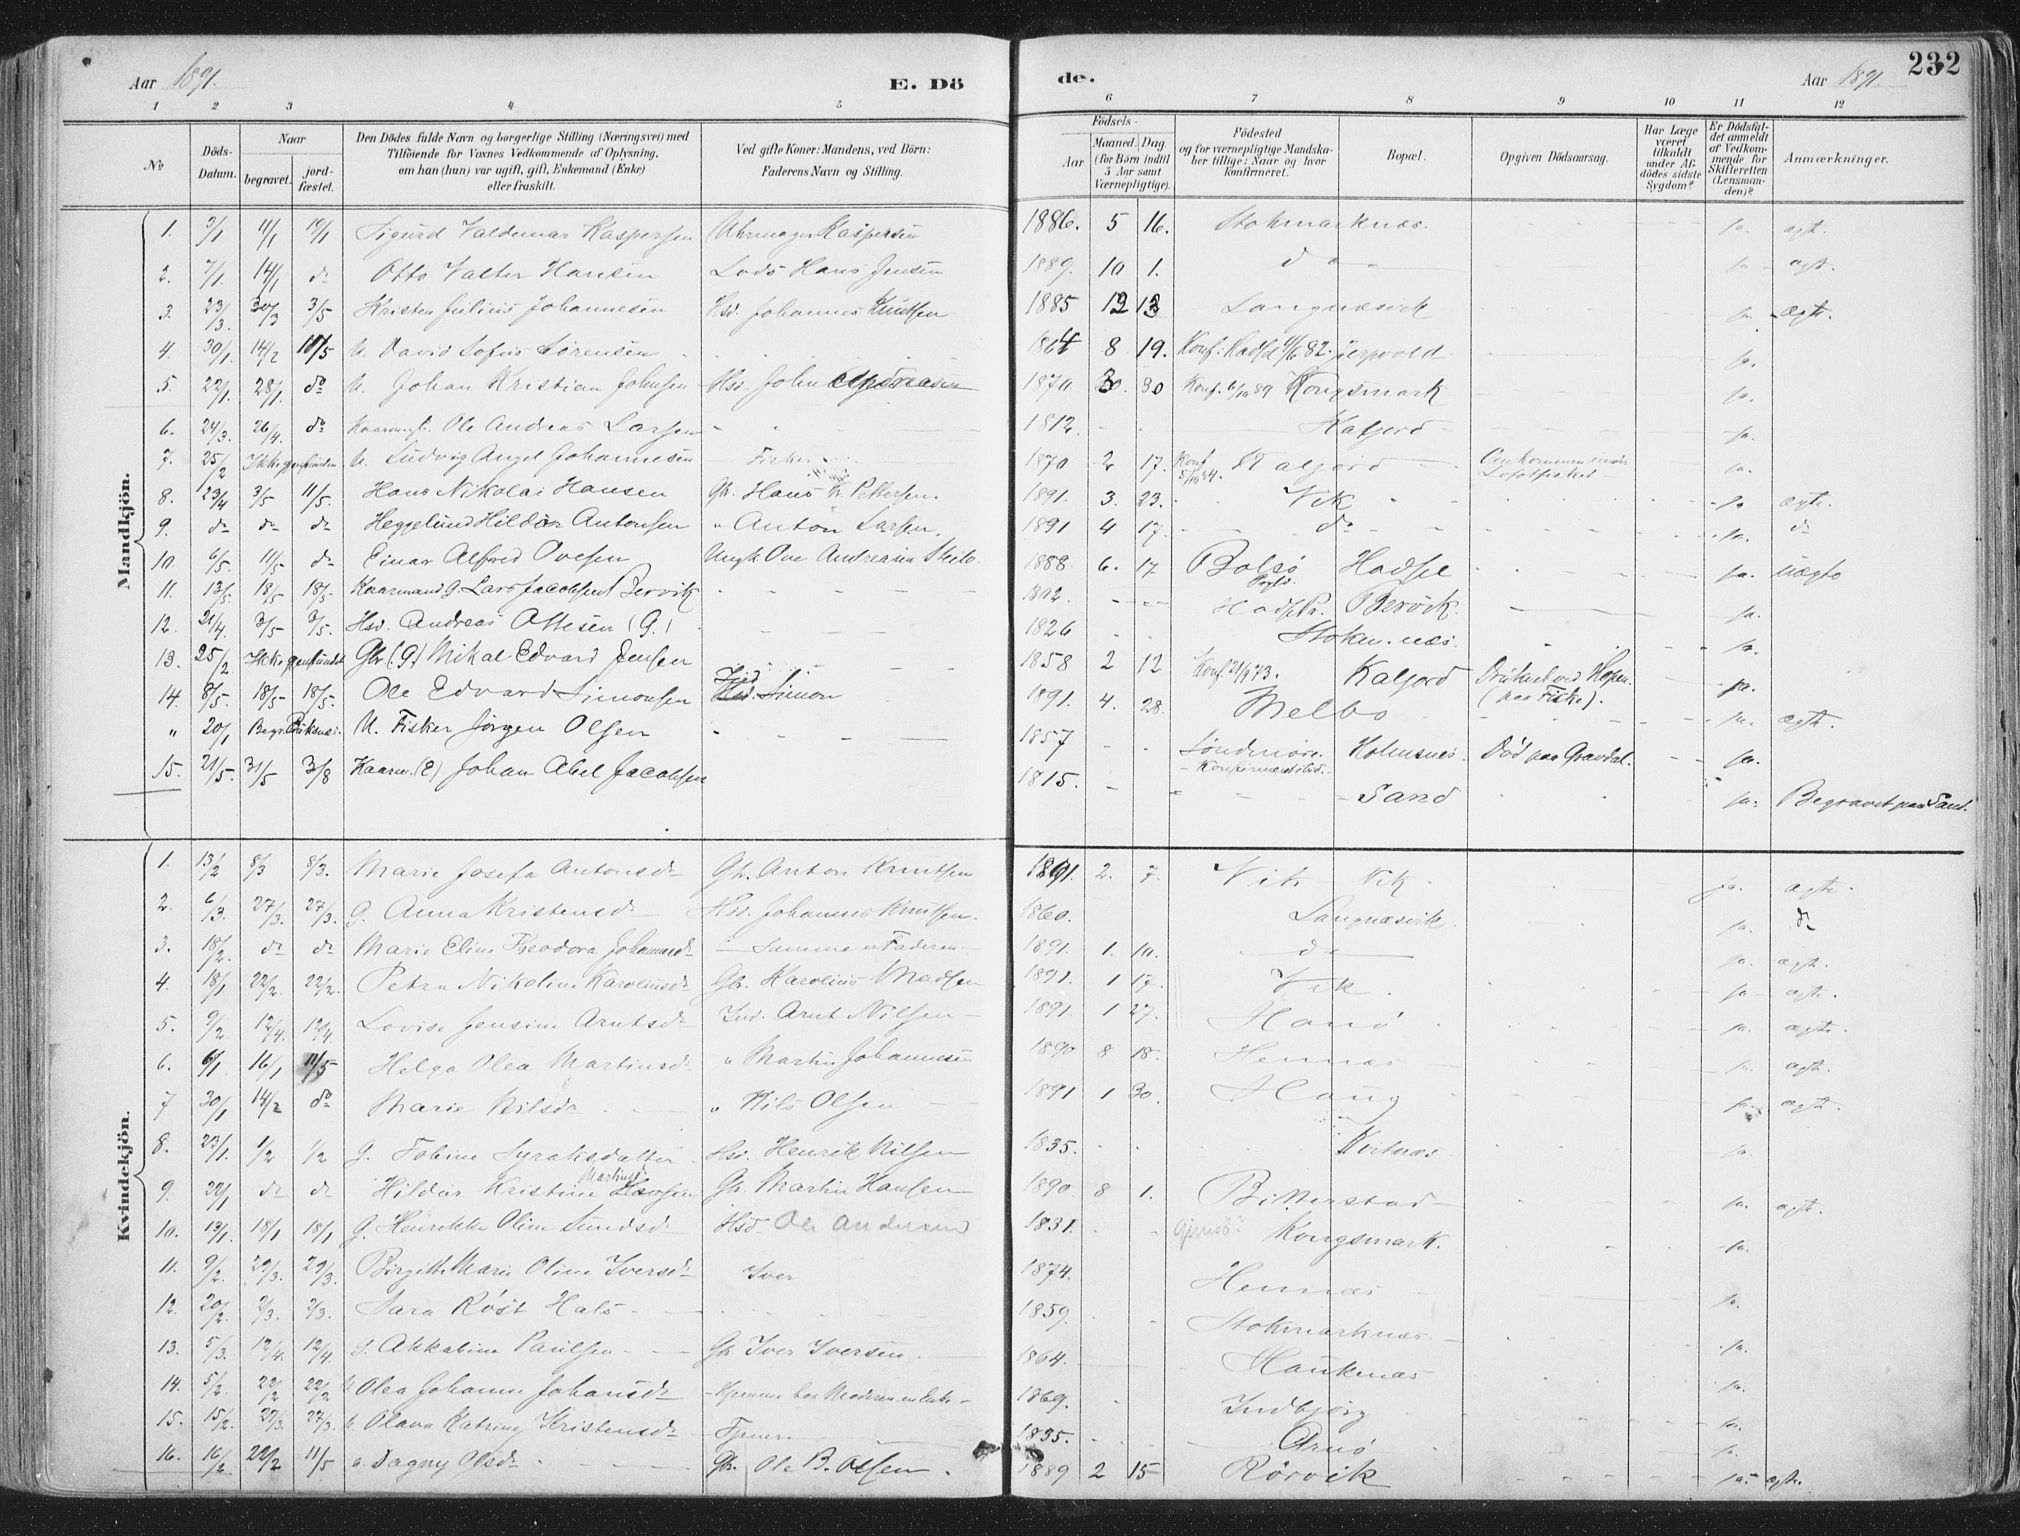 Aar 1891. E. Dö de. Aar 1891. 232
1 2 3 4 5 6 7 8 9 10 11 12
No
Döds-Datum.
Naar
begravet.
jordfæstet.
Den Dödes fulde Navn og borgerlige Stilling (Næringsvei) med
Tilföiende for Voxnes Vedkommende af Oplysning,
om han (hun) var ugift, gift, Enkemand (Enke)
eller fraskilt.
Ved gifte Koner: Mandens, ved Börn:
Faderens Navn og Stilling.
Födsels-
Aar
Maaned. Dag.
(for Börn indtil 5 Aar samt Værnepligtige).
Födested
og for værnepligtige Mandskaber tillige: Naar og hvor konfirmeret.
Bopæl.
Opgiven Dödsaarsag.
Har Læge været tilkaldt under Afdödes sidste Sygdom?
Er Dödsfaldet anmeldt af Vedkommende for Skifteretten (Lensmanden)?
Anmærkninger.
Mandkjön.
1. 3/1 11/1 12/1 Sigurd Valdemar Kaspersen Uhrmager Kaspersen 1886. 5 16. Stokmarknæs. ja. ægt.
2. 7/1 14/1 do Otto Valter Hansen Lods Hans Jensen 1889. 10 1. do ja ægt.
3. 23/3. 30/3 3/5 Kristen Julius Johannesen Hsd. Johannes Knutsen 1885 Langnæsvik ja. ægt.
4. 30/1. 14/2 U. David Sofus Sørensen 1864 8 19. Konf: Hadsel 82. Jerpvold ja.
5. 22/1. 28/1. do U. Johan Kristian Johnsen Hsd. John Andreasen 1870 30 Konf. 89 Kongsmark ja.
6. 24/3. 26/4. do Kaarm. Ole Andreas Larsen 1812. Kaljord ja.
7. 25/2 Ikke gjenfunden U. Ludvig Angel Johannesen Fisker 1870 2 17. Konf 84. Kaljord Omkommen under Lofotfisket ja.
8. 23/4 3/5 11/5. Hans Nikolai Hansen Gb. Hans Pettersen. 1891. 3. 23. Vik ja ægte.
9. do do do Heggelund Hildor Antonsen " Anton Larsen. 1891 4 17. do ja. do
10. 6/5. 11/5 do Einar Alfred Ovesen Ungk. Ove Andreasen 1888. 6. 17 Bolsø Hadsel ja. uægte
11. 13/5. 18/5 18/5. Kaarmand G. Lars Jacobsen Børvik Hadsel Pr. Børvik. ja.
12. 21/4. 3/5 3/5. Hsd. Andreas Ottesen (G.) 1826 Stokm.næs. ja.
13. 25/2 Ikke gjenfundet Gbr (G) Mikal Edvard Jensen 1858 2 12 Konf 73. Kaljord Druknet ved Hopen. (paa Fiske). ja.
14. 8/5. 18/5 18/5. Ole Edvard Simonsen Simon 1891. 4. 28. Melbo ja. ægte.
" 20/1 Begr. U. Fisker Jörgen Olsen 1857 Søndmøre. Holmsnes. Død paa Gravdal. ja.
15. 21/5. 31/5 3/8 Kaarm. (E) Johan Abel Jacobsen 1815. Sand ja. Begravet paa Sand.
Kvindekjön.
1. 13/2 8/3 8/3. Marie Josefa Antonsdr Gb. Anton Knutsen 1891. 2. 7. Vik Vik ja. ægte.
2. 6/3. 27/3. 27/3. G. Anna Kristensdr Hsd. Johannes Knutsen. 1860. Langnæsvik. ja. do
3. 18/2. do do Marie Eline Theodora Johannesdr Samme er Faderen 1891. 1. 10. do ja. ægt.
4. 18/1 22/2. 22/2. Petra Nikoline Karoliusdr Gbr. Karolius Madsen 1891. 1 17. Vik. ja ægte.
5. 9/2 12/4. 12/4 Lovise Jensine Arntsdr Ind. Arnt Nilsen 1891. 1 27. Hanø ja. ægte
6. 6/1 16/1 11/5 Helga Olea Martinsdr " Martin Johannesen 1890 8 18. Hennæs ja. ægt.
7 30/1 14/2 do Marie Nilsdr " Nils Olsen 1891 1 30. Haug ja. ægt.
8. 23/1. 1/2 1/2 G. Tobine Syraksdatter Hsd. Henrik Nilsen 1835. Kvitnæs ja.
9. 22/1 do do Hildur Kristine Martinsdr Gb. Martin Hansen 1890. 8 1. Bitterstad ja. ægt.
10. 13/1. 18/1 18/1 G. Henrikke Oline Sundsdr Hsd. Ole Andersen 1831. Gimsø? Kongsmark. ja.
11. 9/2. 29/3. 29/3. Birgitte Marie Oline Iversdr Iver 1874. Hennæs ja.
12. 20/2. 3/3. 3/3. Sara Røst Hals 1859. Stokmarknæs ja.
13. 5/3. 12/4. 12/4 G. Akkabine Paulsen Gb. Iver Iversen. 1864. Haukenæs ja.
14. 5/2. 22/2 22/2 U. Olea Johanne Johansdr Hjemme hos Moderen en Enke 1869. Indbjørg ja.
15. 15/2. 27/3. 27/3. Olava Katrine Kristensdr Tjener 1835. Arnø ja
16. 16/2 22/2 11/5 Dagny Olsdr Gb. Ole B. Olsen. 1889 2 15 Rørvik ja ægte.